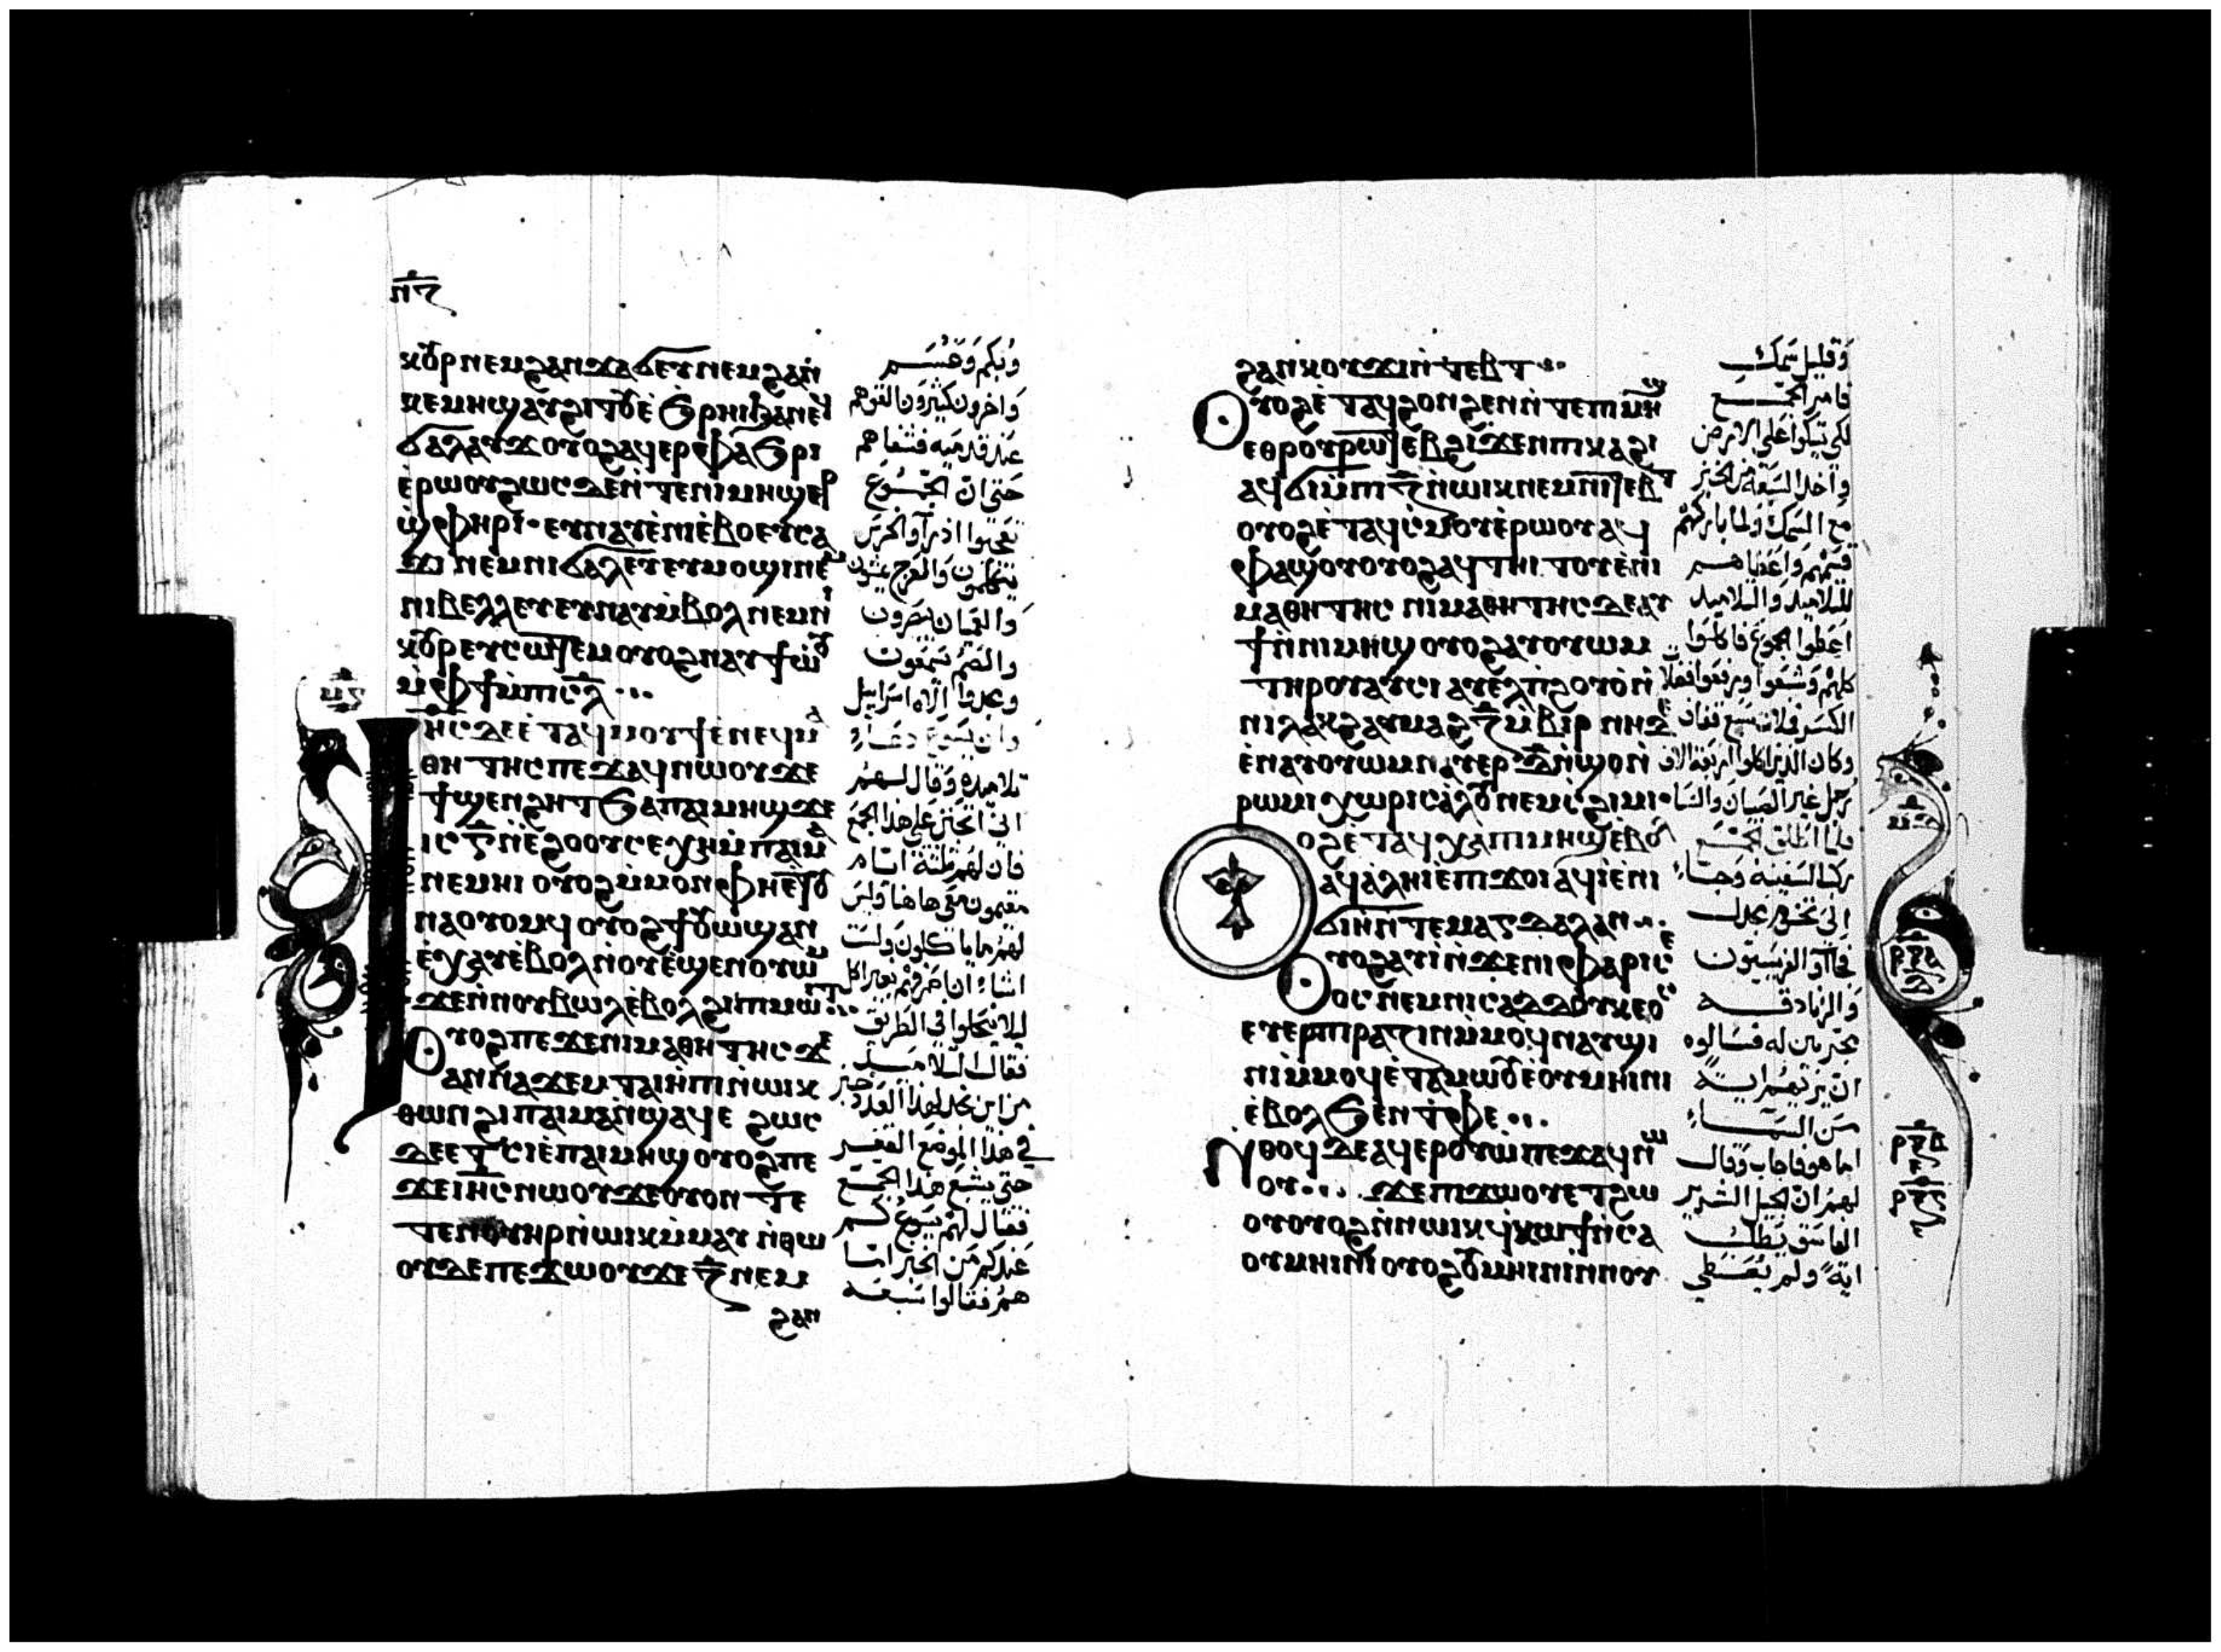 ⲡ︦ⲍ︦
ⲕⲟⲩⲣ ⲛⲉⲙ ϩⲁⲛϫⲁϭⲉⲩ ⲛⲉⲙ ϩⲁⲛ
ⲕⲉⲙⲏϣ ⲁⲩϩⲓⲧⲟⲩ ⲉ̀ϧⲣⲏⲓ ϧⲁ ⲛⲉϥ
ϭⲁⲗⲁⲩϫ ⲟⲩⲟϩ ⲁϥⲉⲣⲫⲁϧⲣⲓ
ⲉ̀ⲣⲱⲟⲩ ϩⲱⲥⲇⲉ ⲛ̀ⲧⲉ ⲡⲓⲙⲏϣ ⲉⲣ
ϣ̀ⲫⲏⲣⲓ· ⲉⲩⲛⲁⲩ ⲉ̀ⲛⲓⲉ̀ⲃⲟ ⲉⲩⲥⲁ
ϫⲓ ⲛⲉⲙ ⲛⲓϭⲁⲗⲉⲩ ⲉⲩⲙⲟϣⲓ ⲛⲉⲙ
ⲛⲓⲃⲉⲗⲗⲉⲩ ⲉⲩⲛⲁⲩ ⲙ̀ⲃⲟⲗ ⲛⲉⲙ ⲛⲓ
ⲕⲟⲩⲣ ⲉⲩⲥⲱⲧⲉⲙ ⲟⲩⲟϩ ⲛⲁⲩϯⲱ̀ⲟⲩ
ⲙ̀ⲫϯ ⲙ̀ⲡⲓⲥ︦ⲗ︦
ⲙ︦ⲋ︦
ⲓⲏ︦ⲥ︦ ⲇⲉ ⲉ̀ⲧⲁϥⲙⲟⲩϯ ⲉ̀ⲛⲉϥⲙⲁ
ⲑⲏⲧⲏⲥ ⲡⲉϫⲁϥ ⲛⲱⲟⲩ ϫⲉ
ϯϣⲉⲛϩⲏⲧ ϧⲁ ⲡⲁⲓⲙⲏϣ ϫⲉ
ⲓⲥ ⲅ̅ ⲛ̀ⲉ̀ϩⲟⲟⲩ ⲥⲉⲭⲏ ⲙ̀ⲡⲁⲓⲙⲁ
ⲛⲉⲙⲏⲓ ⲟⲩⲟϩ ⲙ̀ⲙⲟⲛ ⲫⲏ ⲉ̀ⲧⲟⲩ
ⲛⲁⲟⲩⲟⲙϥ ⲟⲩⲟϩ ϯⲟⲩⲱϣ ⲁⲛ
ⲉ̀ⲭⲁⲩ ⲉ̀ⲃⲟⲗ ⲛ̀ⲟⲩⲉ̀ϣⲉⲛ ⲟⲩⲱⲙ
ϫⲉ ⲛ̀ⲛⲟⲩⲃⲱⲗ ⲉ̀ⲃⲟⲗ ϩⲓ ⲡⲓⲙⲱⲓⲧ
ⲟⲩⲟϩ ⲡⲉϫⲉ ⲛⲓⲙⲁⲑⲏⲧⲏⲥ ϫⲉ
ⲁⲛⲛⲁϫⲉⲙ ⲧⲁⲓⲏ̀ⲡⲓ ⲛ̀ⲱⲓⲕ
ⲑⲱⲛ ϩⲓ ⲡⲁⲓⲙⲁ ⲛ̀ϣⲁϥⲉ ϩⲱⲥ
ⲇⲉ ⲉⲧⲥⲓⲉ̀ ⲡⲁⲓⲙⲏϣ ⲟⲩⲟϩ ⲡⲉ
ϫⲉ ⲓⲏ︦ⲥ︦ ⲛⲱⲟⲩ ϫⲉ ⲟⲩⲟⲛ ⲧⲉ
ⲧⲉⲛ ⲟⲩⲏⲣ ⲛ̀ⲱⲓⲕ ⲙ̀ⲙⲁⲩ ⲛ̀ⲑⲱ
ⲟⲩ ⲇⲉ ⲡⲉϫⲱⲟⲩ ϫⲉ ⲍ̅ ⲛⲉⲙ
ϩⲁⲛ
وبكم وعسم
واخرون كثيرون القوهم
عند قدميه فشفاهم
حتى ان الجموع
تعجبوا اذ رآوا الخرس
يتكلمون والعرج يمشون
والعميان يبصرون
والصم يسمعون
ومجدوا الاه اسراييل
وان يسوع دعا
تلاميده وقال لهم
انى اتحنن على هذا الجمع
فان لهم ثلثة ايام
مقيمون معى هاهنا وليس
لهم ما ياكلون ولست
اشاء ان اصرفهم بغير اكل
ليلا يتحلوا فى الطريق
فقال التلاميد
من اين نجد لهذا العدد خبز
فى هذا الموضع القفر
حتى يشبع هذا الجمع
فقال لهم يسوع كم
عندكم من الخبز اما
هم فقالوا سبعه
ϩⲁⲛⲕⲟⲩϫⲓ ⲛ̀ⲧⲉⲃⲧ
ⲟⲩⲟϩ ⲉ̀ⲧⲁϥϩⲟⲛϩⲉⲛ ⲛ̀ⲧⲉⲡⲓⲙⲏϣ
ⲉⲑⲣⲟⲩⲣⲱⲧⲉⲃ ϩⲓϫⲉⲛ ⲡⲓⲕⲁϩⲓ
ⲁϥϭⲓ ⲙ̀ⲡⲓ ⲍ̅ ⲛ̀ⲱⲓⲕ ⲛⲉⲙ ⲛⲓⲧⲉⲃⲧ
ⲟⲩⲟϩ ⲉ̀ⲧⲁϥⲥ̀ⲙⲟⲩ ⲉ̀ⲣⲱⲟⲩ ⲁϥ
ⲫⲁϣⲟⲩ ⲟⲩⲟϩ ⲁϥⲧⲏⲓⲧⲟⲩ ⲉ̀ⲛⲓ
ⲙⲁⲑⲏⲧⲏⲥ ⲛⲓⲙⲁⲑⲏⲧⲏⲥ ⲇⲉ ⲁⲩ
ϯ ⲛ̀ⲛⲓⲙⲏϣ ⲟⲩⲟϩ ⲁⲩⲟⲩⲱⲙ
ⲧⲏⲣⲟⲩ ⲁⲩⲥⲓ ⲁⲩⲉⲗ ⲡ̀ϩⲟⲩⲟ̀ ⲛ̀
ⲛⲓⲗⲁⲕϩ ⲁⲩⲙⲁϩ ⲍ̅ ⲙ̀ⲃⲓⲣ ⲛⲏ ⲇⲉ
ⲉ̀ⲛⲁⲩⲟⲩⲱⲙ ⲛⲁⲩⲉⲣ ⲇ̅ ⲛ̀ϣⲟ ⲛ̀
ⲣⲱⲙⲓ ⲭⲱⲣⲓⲥ ⲁ̀ⲗⲟⲩ ⲛⲉⲙ ⲥ̀ϩⲓⲙⲓ
ⲟⲩⲟϩ ⲉ̀ⲧⲁϥⲭⲁ ⲡⲓⲙⲏϣ ⲉ̀ⲃⲟⲗ
ⲁϥⲁ̀ⲗⲏⲓ ⲉ̀ⲡⲓϫⲟⲓ ⲁϥⲓ̀ ⲉ̀ⲛⲓ
ϭⲓⲏ ⲛ̀ⲧⲉ ⲙⲁⲅⲇⲁⲗⲁⲛ
ⲟⲩⲟϩ ⲁⲩⲓ̀ ⲛ̀ϫⲉ ⲛⲓⲫⲁⲣⲓⲥⲉ
ⲟⲥ ⲛⲉⲙ ⲛⲓⲥⲁⲇⲇⲟⲩⲕⲉⲟⲥ
ⲉⲩⲉⲣⲡⲓⲣⲁⲍⲓⲛ ⲙ̀ⲙⲟϥ ⲛⲁⲩϣⲓ
ⲛⲓ ⲙ̀ⲙⲟϥ ⲉ̀ⲧⲁⲙⲱⲟⲩ ⲉ̀ⲟⲩⲙⲏⲓⲛⲓ
ⲉ̀ⲃⲟⲗ ϧⲉⲛ ⲧ̀ⲫⲉ
ⲛ̀ⲑⲟϥ ⲇⲉ ⲁϥⲉⲣⲟⲩⲱ̀ ⲡⲉϫⲁϥ ⲛⲱ
ⲟⲩ ϫⲉ ⲡⲓϫⲱⲟⲩ ⲉⲧϩⲱ
ⲟⲩ ⲟⲩⲟϩ ⲛ̀ⲛⲱⲓⲕ ϥ̀ⲕⲱϯ ⲛ̀ⲥⲁ
ⲟⲩⲙⲏⲓⲛⲓ ⲟⲩⲟϩ ⲟⲩⲙⲏⲓⲛⲓ ⲛ̀ⲛⲟⲩ
وقليل سمك
فامر الجمع
لكى يتكوا على الارض
واخد السبعة من الخبز
مع السمك ولما باركهم
قسمهم واعطاهم
للتلاميد والتلاميد
اعطوا الجموع فاكلوا
كلهم وشبعوا ورفعوا فضلات
الكسر فملات سبع قفاف
وكان الذين اكلوا اربعة الاف
رجل غير الصبيان والنسا
فلما اطلق الجمع
ركب السفينة وجاء
الى تخوم مجدل
فجآوا الفريسيون
والزنادقه
يجربين له فسالوه
ان يريهم اية
من السماء
اما هو فاجاب وقال
لهم ان الجيل الشرير
الفاسق يطلب
اية ولم يعطى
ⲙ︦ⲍ︦
ⲣ︦ⲝ︦ⲁ︦
ⲣ︦ⲝ︦ⲃ︦
ⲣ︦ⲝ︦ⲅ︦